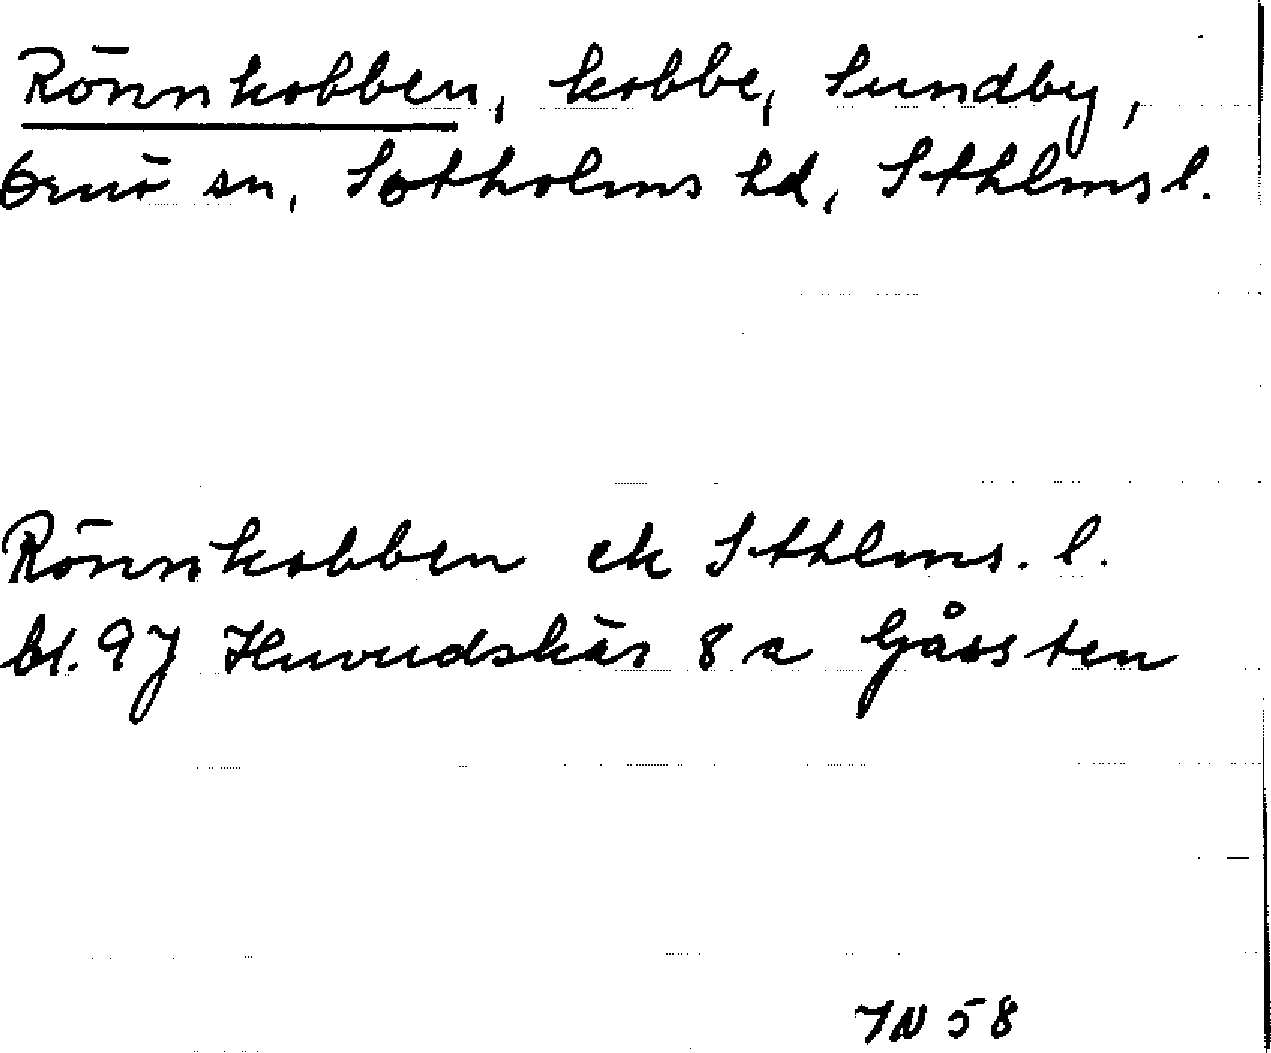 Rönnkobben, kobbe, Sundby,
Ornö sn, Sotholms hd, Sthlms l.
Rönnkobben ek Sthlms. l.
bl. 9J Huvudskär 8 a Gåssten
IN 58